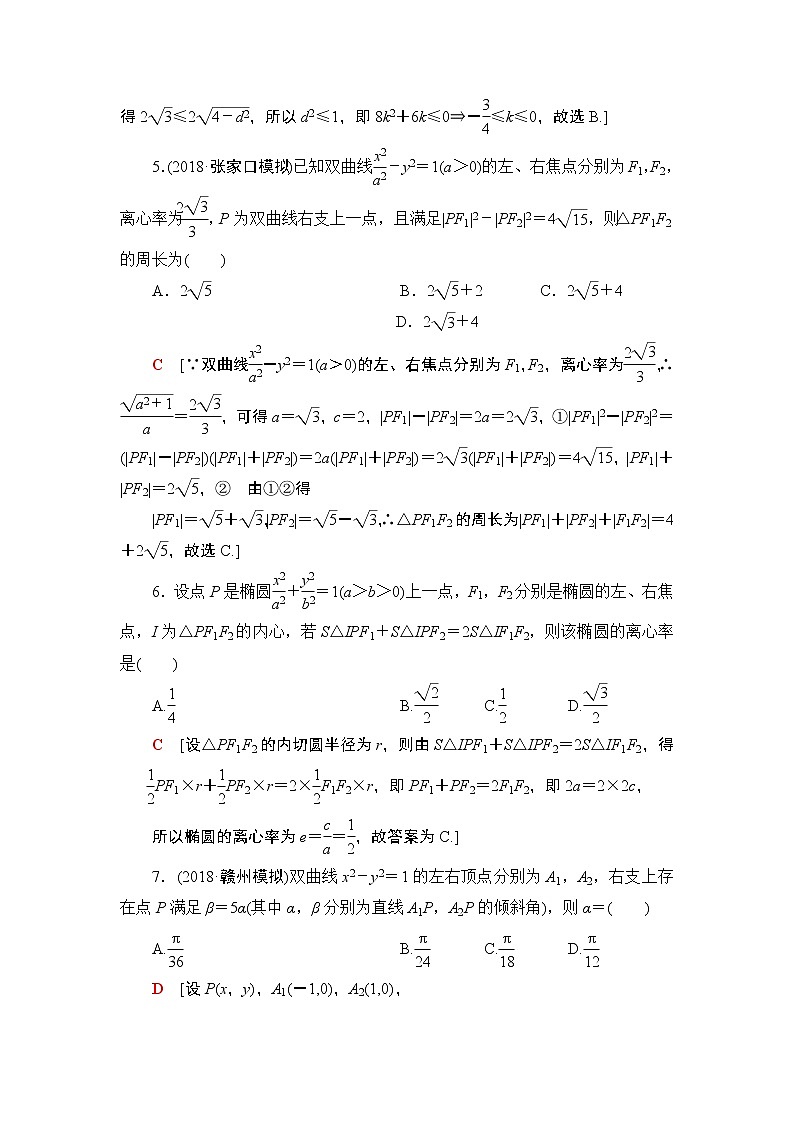 得 2√3≤2√(4-d²)，所以 d²≤1，即 8k²＋6k≤0⇒－3/4≤k≤0，故选 B.]
5.(2018·张家口模拟)已知双曲线x²/a²－y²＝1(a＞0)的左、右焦点分别为 F₁，F₂，
离心率为2√3/3，P 为双曲线右支上一点，且满足|PF₁|²－|PF₂|²＝4√15，则△PF₁F₂
的周长为(　　)
A．2√5　　B．2√5＋2　　C．2√5＋4
D．2√3＋4
C　[∵双曲线x²/a²－y²＝1(a＞0)的左、右焦点分别为 F₁，F₂，离心率为2√3/3，∴
√(a²＋1)/a＝2√3/3，可得 a＝√3，c＝2，|PF₁|－|PF₂|＝2a＝2√3，①|PF₁|²－|PF₂|²＝
(|PF₁|－|PF₂|)(|PF₁|＋|PF₂|)＝2a(|PF₁|＋|PF₂|)＝2√3(|PF₁|＋|PF₂|)＝4√15，|PF₁|＋
|PF₂|＝2√5，②　由①②得
|PF₁|＝√5＋√3，|PF₂|＝√5－√3，∴△PF₁F₂ 的周长为|PF₁|＋|PF₂|＋|F₁F₂|＝4
＋2√5，故选 C.]
6．设点 P 是椭圆x²/a²＋y²/b²＝1(a＞b＞0)上一点，F₁，F₂ 分别是椭圆的左、右焦
点，I 为△PF₁F₂ 的内心，若 S△IPF₁＋S△IPF₂＝2S△IF₁F₂，则该椭圆的离心率
是(　　)
A.1/4　　B.√2/2　　C.1/2　　D.√3/2
C　[设△PF₁F₂ 的内切圆半径为 r，则由 S△IPF₁＋S△IPF₂＝2S△IF₁F₂，得
1/2PF₁×r＋1/2PF₂×r＝2×1/2F₁F₂×r，即 PF₁＋PF₂＝2F₁F₂，即 2a＝2×2c，
所以椭圆的离心率为 e＝c/a＝1/2，故答案为 C.]
7．(2018·赣州模拟)双曲线 x²－y²＝1 的左右顶点分别为 A₁，A₂，右支上存
在点 P 满足 β＝5α(其中 α，β 分别为直线 A₁P，A₂P 的倾斜角)，则 α＝(　　)
A.π/36　　B.π/24　　C.π/18　　D.π/12
D　[设 P(x，y)，A₁(－1,0)，A₂(1,0)，